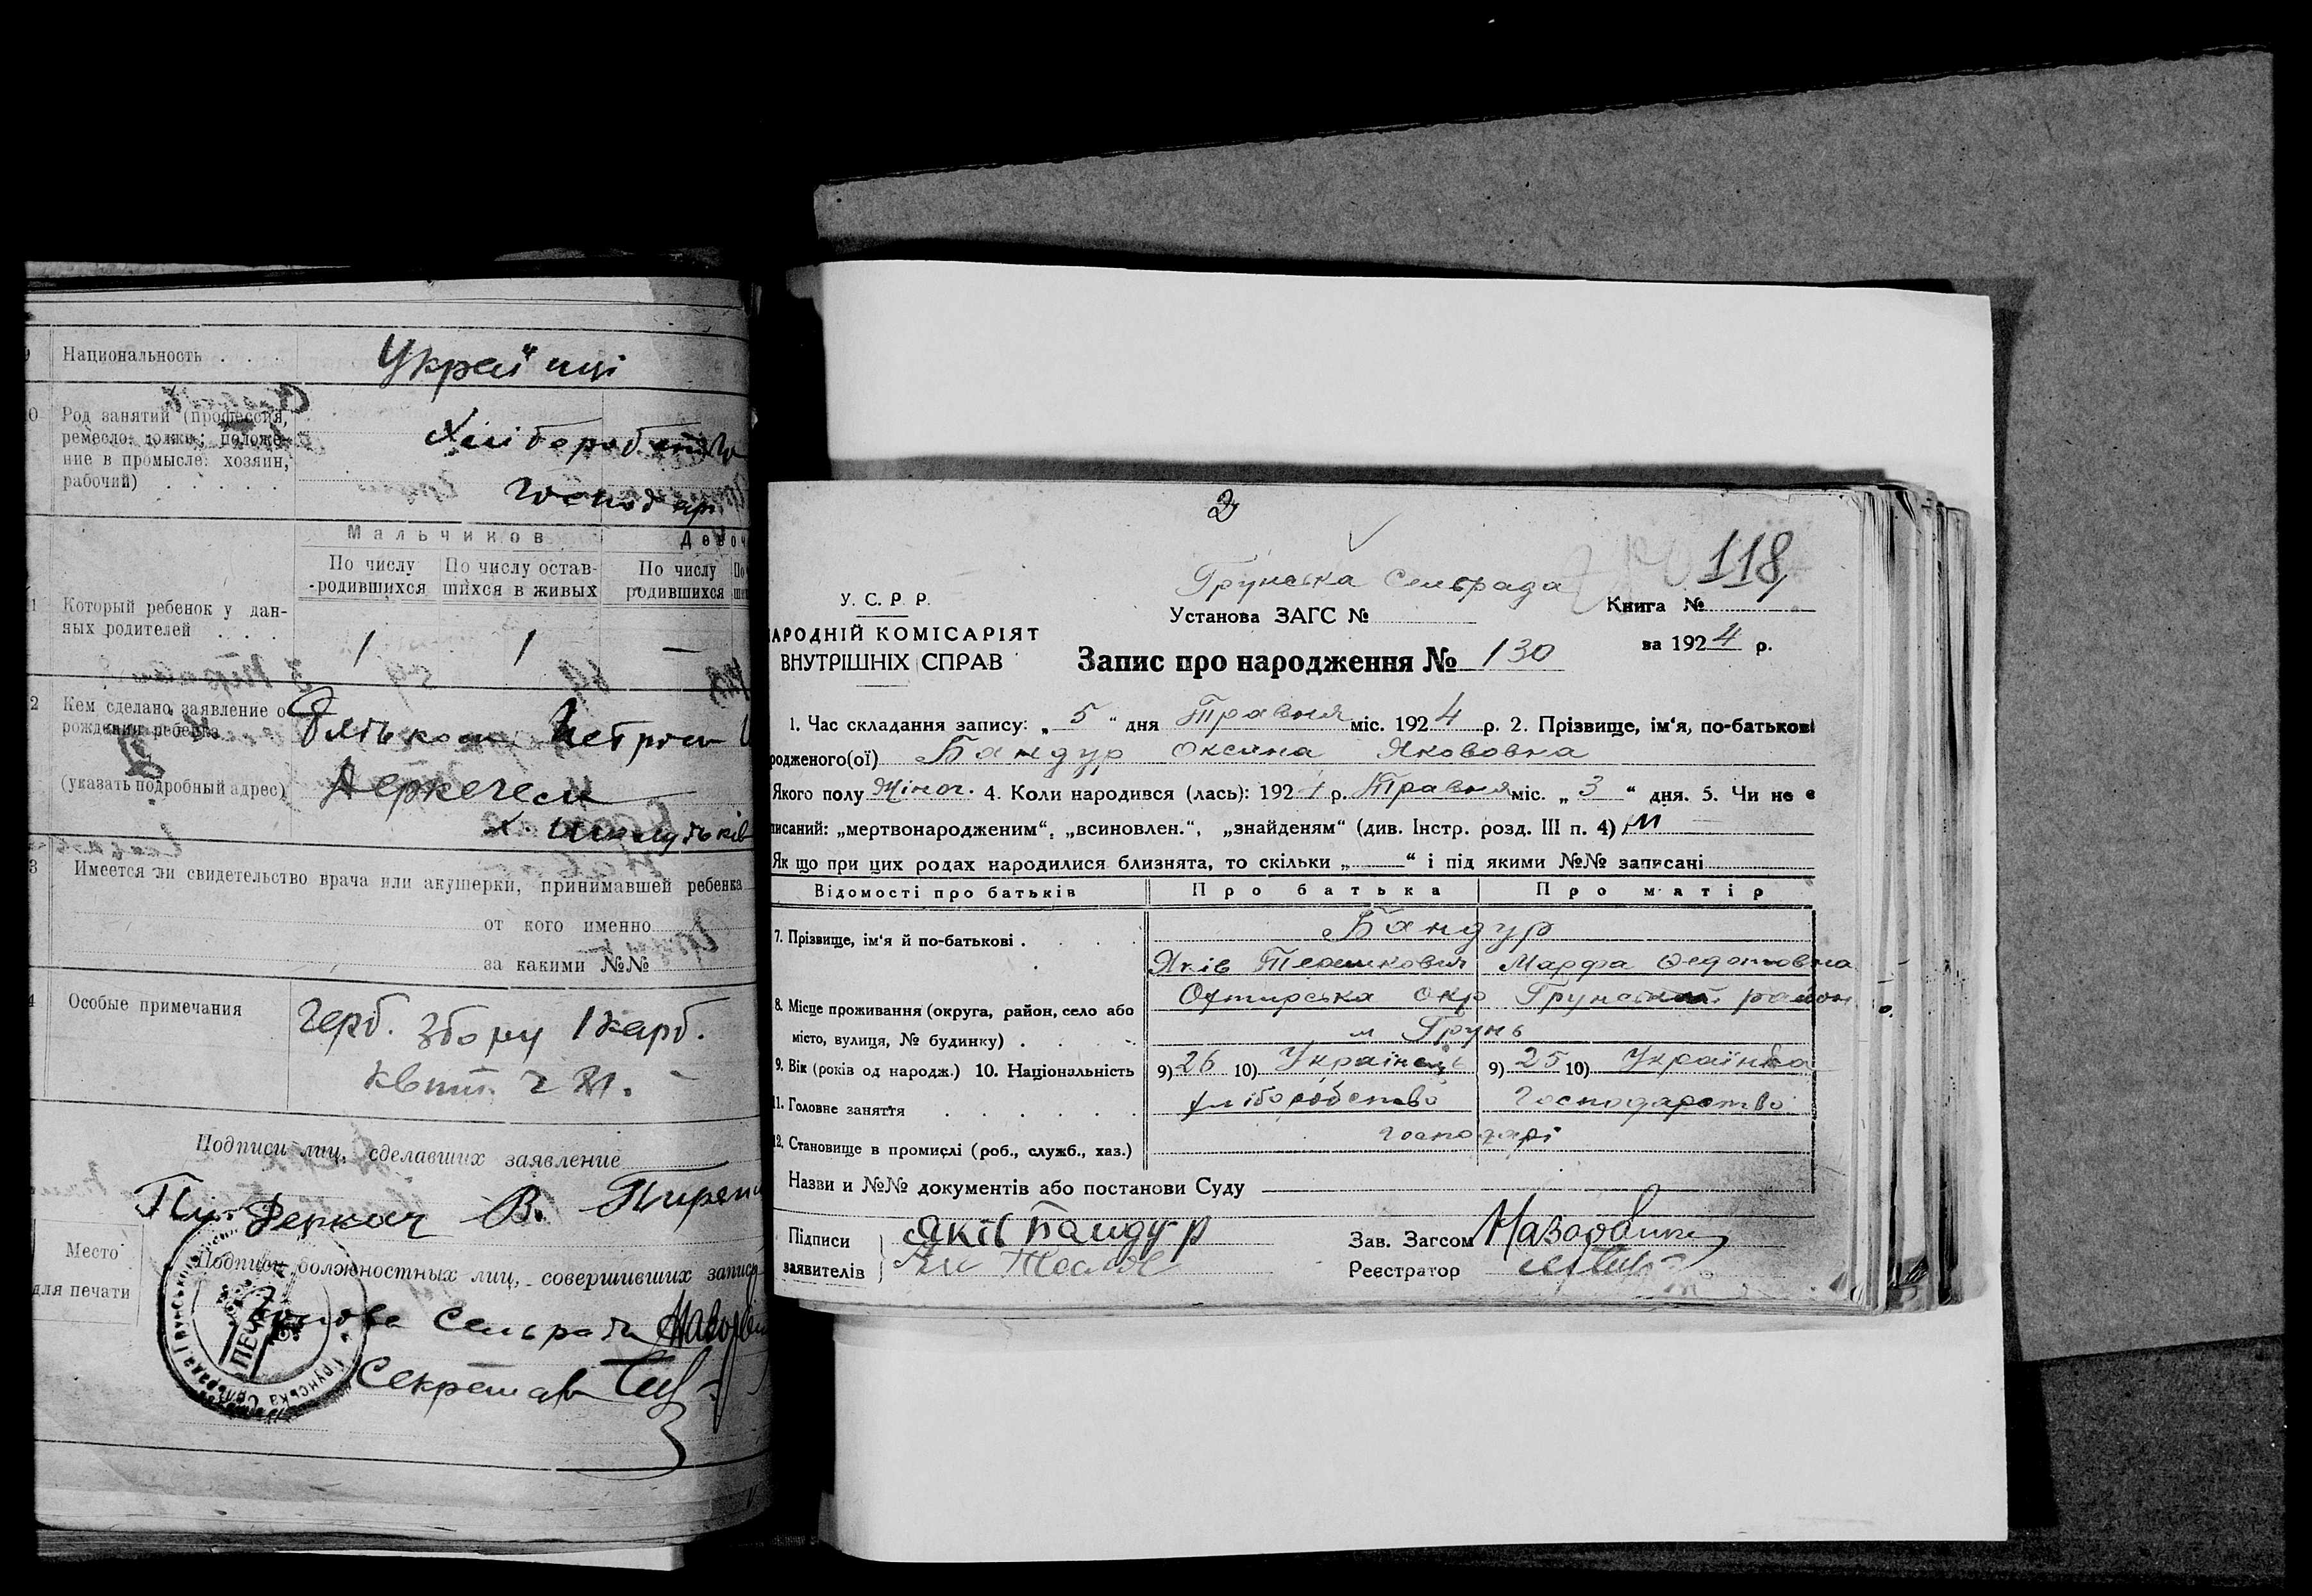 Национальность . . .
Українці
Род занятий (профессия,
ремесло: должн.; положе-
ние в промысле: хозяин,
рабочий) . . . . .
Хлібороб
господарі
Мальчиков
Девоч
По числу
-родившихся
По числу остав-
шихся в живых
По числу
родившихся
Который ребенок у дан-
ных родителей . . .
1 1 —
Кем сделано заявление о
рождении ребенка
(указать подробный адрес)
Батьком Петром
Деркачем
х.
Имеется ли свидетельство врача или акушерки, принимавшей ребенка
от кого именно
за какими №№
Особые примечания
Герб. збору 1 карб.
квит.
Подписи лиц, сделавших заявление
Деркач В.
Место
для печати
Подписи должностных лиц, совершивших запись
Голова Сельради
Секретар
2
118
Грунська Сельрада
У. С. Р. Р.
Установа ЗАГС №
Книга №
АРОДНІЙ КОМІСАРІЯТ
ВНУТРІШНІХ СПРАВ
Запис про народження № 130
за 1924 р.
1. Час складання запису: „5“ дня Травня міс. 1924 р. 2. Прізвище, ім‘я, по-батькові
родженого(ої) Бандур Оксана Якововна
Якого полу Жіноч. 4. Коли народився (лась): 1924 р. Травня міс. „3“ дня. 5. Чи не є
писаний: „мертвонародженим“, „всиновлен.“, „знайденям“ (див. Інстр. розд. III п. 4)
Як що при цих родах народилися близнята, то скільки „—“ і під якими №№ записані
Відомості про батьків
Про батька
Про матір
7. Прізвище, ім‘я й по-батькові .
Бандур
Яків
Марфа Федотовна
8. Місце проживання (округа, район, село або
місто, вулиця, № будинку) .
Охтирська окр Грунський район
м Грунь
9. Вік (років од народж.) 10. Національність
9) 26 10) Українець 9) 25 10) Українка
11. Головне заняття . . . . . .
хліборобство Господарство
12. Становище в промислі (роб., служб., хаз.)
господарі
Назви и №№ документів або постанови Суду
Підписи
заявителів
Яків Бандур
Зав. Загсом
Реєстратор